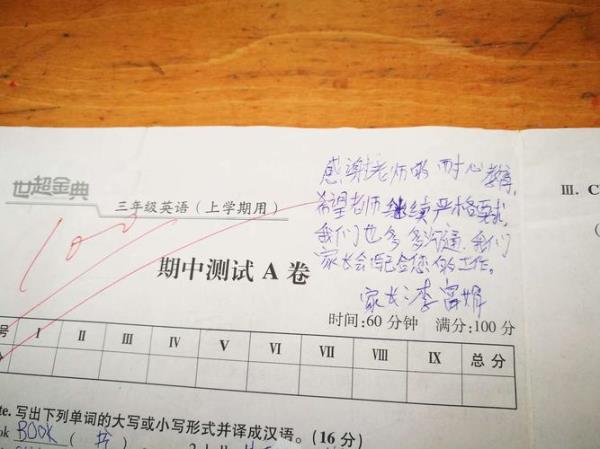 世超金典
三年级英语(上学期用)
100
期中测试 A 卷
感谢老师的耐心教育,
希望老师继续严格要求,
我们也多多沟通,我们
家长会配合您的工作。
家长:李富娟
时间:60 分钟 满分:100 分
号 I II III IV V VI VII VIII IX 总分
te. 写出下列单词的大写或小写形式并译成汉语。(16 分)
ok BOOK ( 书 )
III. C
(